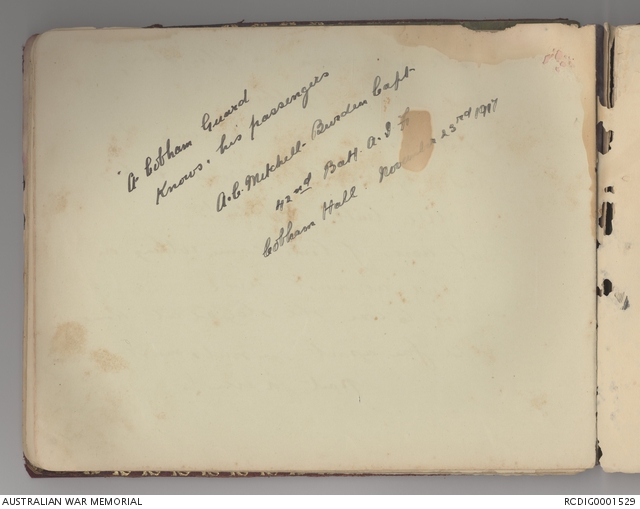 "A Cobham Guard
Knows. his passengers
A. C. Mitchell-Burden Capt
42nd Batt. A. I. F
Cobham Hall. 23rd 1917
AUSTRALIAN WAR MEMORIAL
RCDIG0001529